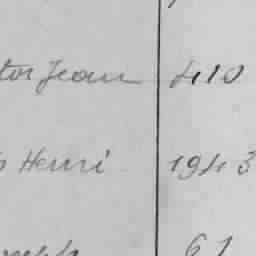 tor Jean 410
Henri 1943
61